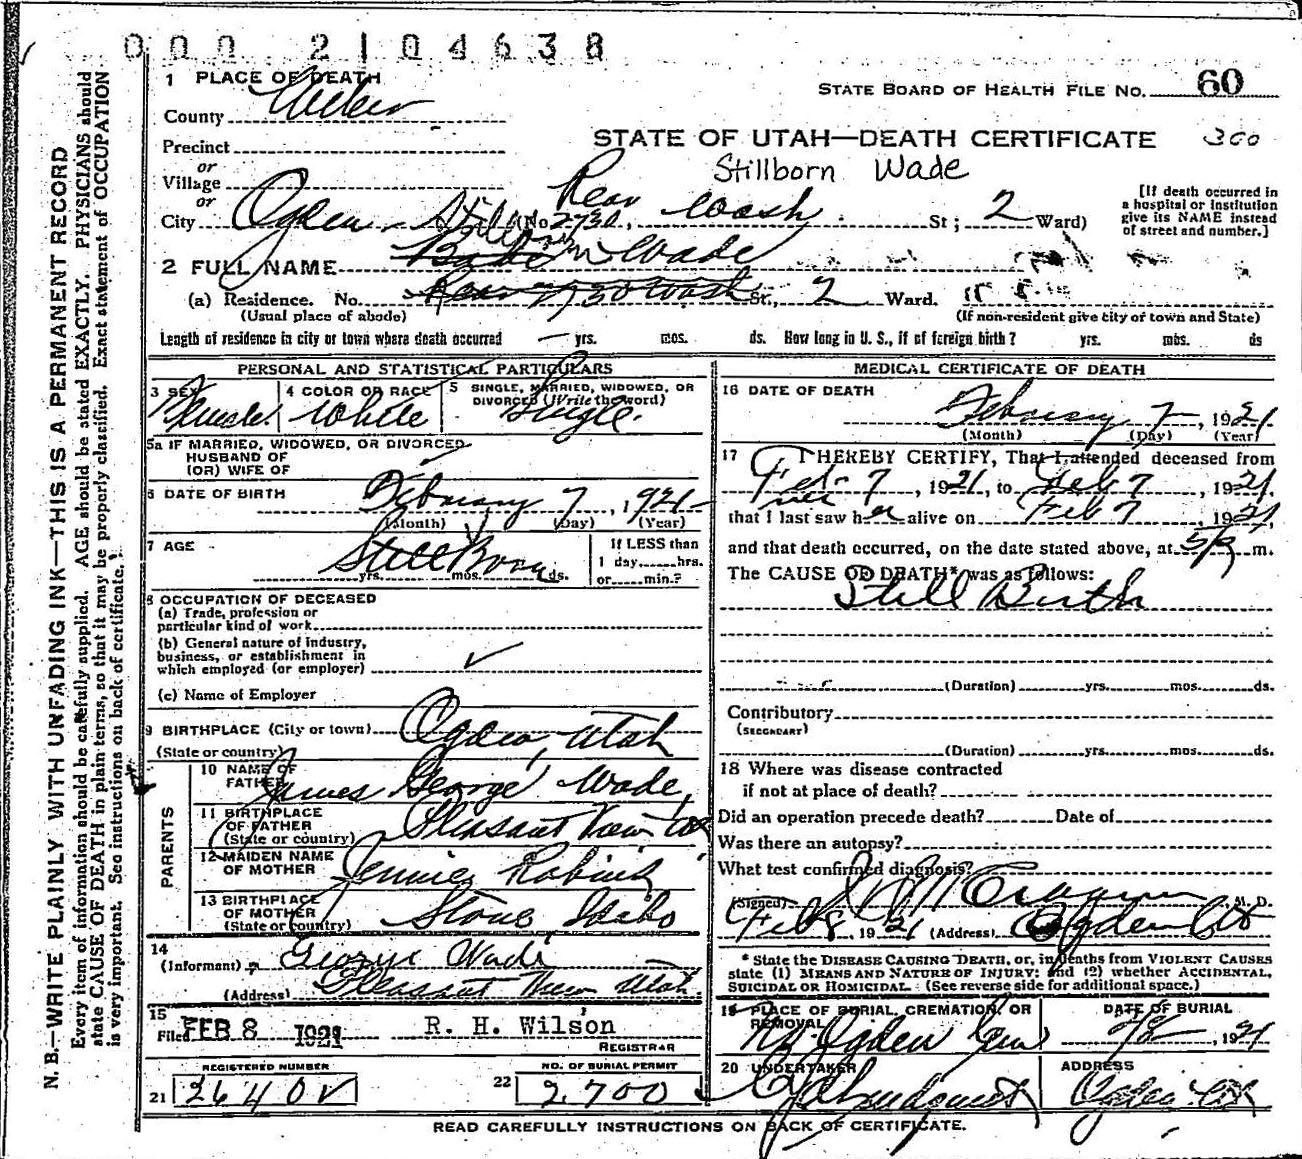 000 2104638
1 PLACE OF DEATH
STATE BOARD OF HEALTH FILE NO. 60
County Weber
STATE OF UTAH—DEATH CERTIFICATE 300
Precinct
Stillborn Wade
or
Village
or
City Ogden (No 2730, Rear Wash St; 2 Ward)
[If death occurred in
a hospital or institution
give its NAME instead
of street and number.]
2 FULL NAME Stillborn Wade
(a) Residence. No. Rear 2730 Wash St., 2 Ward.
(Usual place of abode)
(If non-resident give city or town and State)
Length of residence in city or town where death occurred — yrs. mos. ds. How long in U. S., if of foreign birth? yrs. mos. ds
N. B.—WRITE PLAINLY WITH UNFADING INK—THIS IS A PERMANENT RECORD
Every item of information should be carefully supplied. AGE should be stated EXACTLY. PHYSICIANS should
state CAUSE OF DEATH in plain terms, so that it may be properly classified. Exact statement of OCCUPATION
is very important. See instructions on back of certificate.
PERSONAL AND STATISTICAL PARTICULARS
3 SEX Female
4 COLOR OR RACE White
5 SINGLE, MARRIED, WIDOWED, OR
DIVORCED (Write the word) Single.
5a IF MARRIED, WIDOWED, OR DIVORCED
HUSBAND OF
(OR) WIFE OF
6 DATE OF BIRTH February 7, 1921
(Month) (Day) (Year)
7 AGE Still Born
yrs. mos. ds.
If LESS than
1 day hrs.
or min.?
8 OCCUPATION OF DECEASED
(a) Trade, profession or
particular kind of work
(b) General nature of industry,
business, or establishment in
which employed (or employer)
(c) Name of Employer
9 BIRTHPLACE (City or town) Ogden, Utah
(State or country)
PARENTS
10 NAME OF
FATHER James George Wade
11 BIRTHPLACE
OF FATHER
(State or country) Pleasant View
12 MAIDEN NAME
OF MOTHER Jennie
13 BIRTHPLACE
OF MOTHER
(State or country) Stone, Idaho
14
(Informant) George Wade
(Address) Pleasant View Utah
15
Filed FEB 8 1921 R. H. Wilson
REGISTRAR
REGISTERED NUMBER
21 2640V
NO. OF BURIAL PERMIT
22 2700
MEDICAL CERTIFICATE OF DEATH
16 DATE OF DEATH
February 7, 1921
(Month) (Day) (Year)
17 I HEREBY CERTIFY, That I attended deceased from
Feb 7, 1921, to Feb 7, 1921,
that I last saw her alive on Feb 7, 1921,
and that death occurred, on the date stated above, at m.
The CAUSE OF DEATH* was as follows:
Still Birth
(Duration) yrs. mos. ds.
Contributory
(SECONDARY)
(Duration) yrs. mos. ds.
18 Where was disease contracted
if not at place of death?
Did an operation precede death? Date of
Was there an autopsy?
What test confirmed diagnosis?
(Signed) M. D.
Feb 8, 1921 (Address) Ogden
* State the DISEASE CAUSING DEATH, or, in deaths from VIOLENT CAUSES
state (1) MEANS AND NATURE OF INJURY; and (2) whether ACCIDENTAL,
SUICIDAL OR HOMICIDAL. (See reverse side for additional space.)
19 PLACE OF BURIAL, CREMATION, OR
REMOVAL Ogden
DATE OF BURIAL
2/8, 1921
20 UNDERTAKER
ADDRESS
Ogden
READ CAREFULLY INSTRUCTIONS ON BACK OF CERTIFICATE.